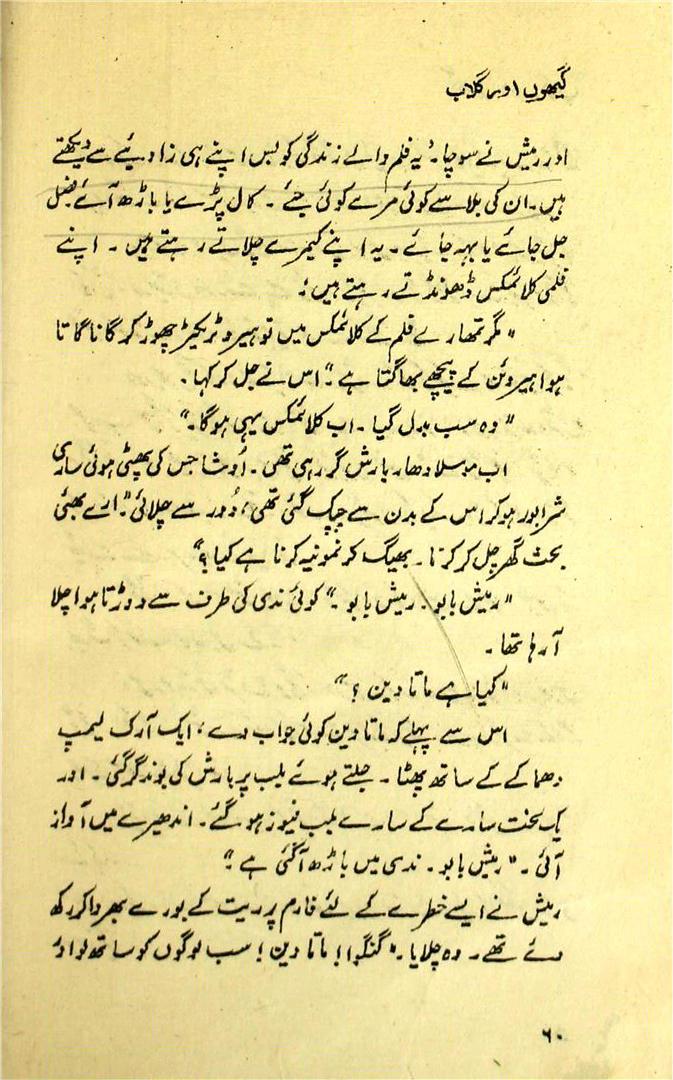 گیہوں اور گلاب
اور رمیش نے سوچا۔ ’یہ فلم والے زندگی کو بس اپنے ہی زاویئے سے دیکھتے
ہیں۔ ان کی بلا سے کوئی مرے کوئی جئے۔ کال پڑے یا باڑھ آئے فصل
جل جائے یا بہہ جائے۔ یہ اپنے کیمرے چلاتے رہتے ہیں۔ اپنے
فلمی کلائمکس ڈھونڈتے رہتے ہیں‘؛
”مگر تمھارے فلم کے کلائمکس میں تو ہیرو ٹریکٹر چھوڑ کر گانا گاتا
ہوا ہیروئن کے پیچھے بھاگتا ہے“ اس نے جل کر کہا۔
”وہ سب بدل گیا۔ اب کلائمکس یہی ہوگا۔“
اب موسلا دھار بارش گر رہی تھی۔ اُوشا جس کی پھٹی ہوئی ساری
شرابور ہوکر اس کے بدن سے چپک گئی تھی، دُور سے چلائی ”ارے بھئی
بحث گھر چل کر کرنا۔ بھیگ کر نمونیہ کرنا ہے کیا؟“
”رمیش بابو۔ رمیش بابو۔“ کوئی ندی کی طرف سے دوڑتا ہوا چلا
آرہا تھا۔
”کیا ہے ماتا دین؟“
اس سے پہلے کہ ماتا دین کوئی جواب دے، ایک آرک لیمپ
دھماکے کے ساتھ پھٹا۔ جلتے ہوئے بلب پر بارش کی بوند گر گئی۔ اور
یک لخت سارے کے سارے بلب فیوز ہو گئے۔ اندھیرے میں آواز
آئی۔ ”رمیش بابو۔ ندی میں باڑھ آگئی ہے“
رمیش نے ایسے خطرے کے لئے فارم پر ریت کے بورے بھروا کر رکھ
دئے تھے۔ وہ چلایا۔ ”گنگوا! ماتا دین! سب لوگوں کو ساتھ لواؤ
۶۰